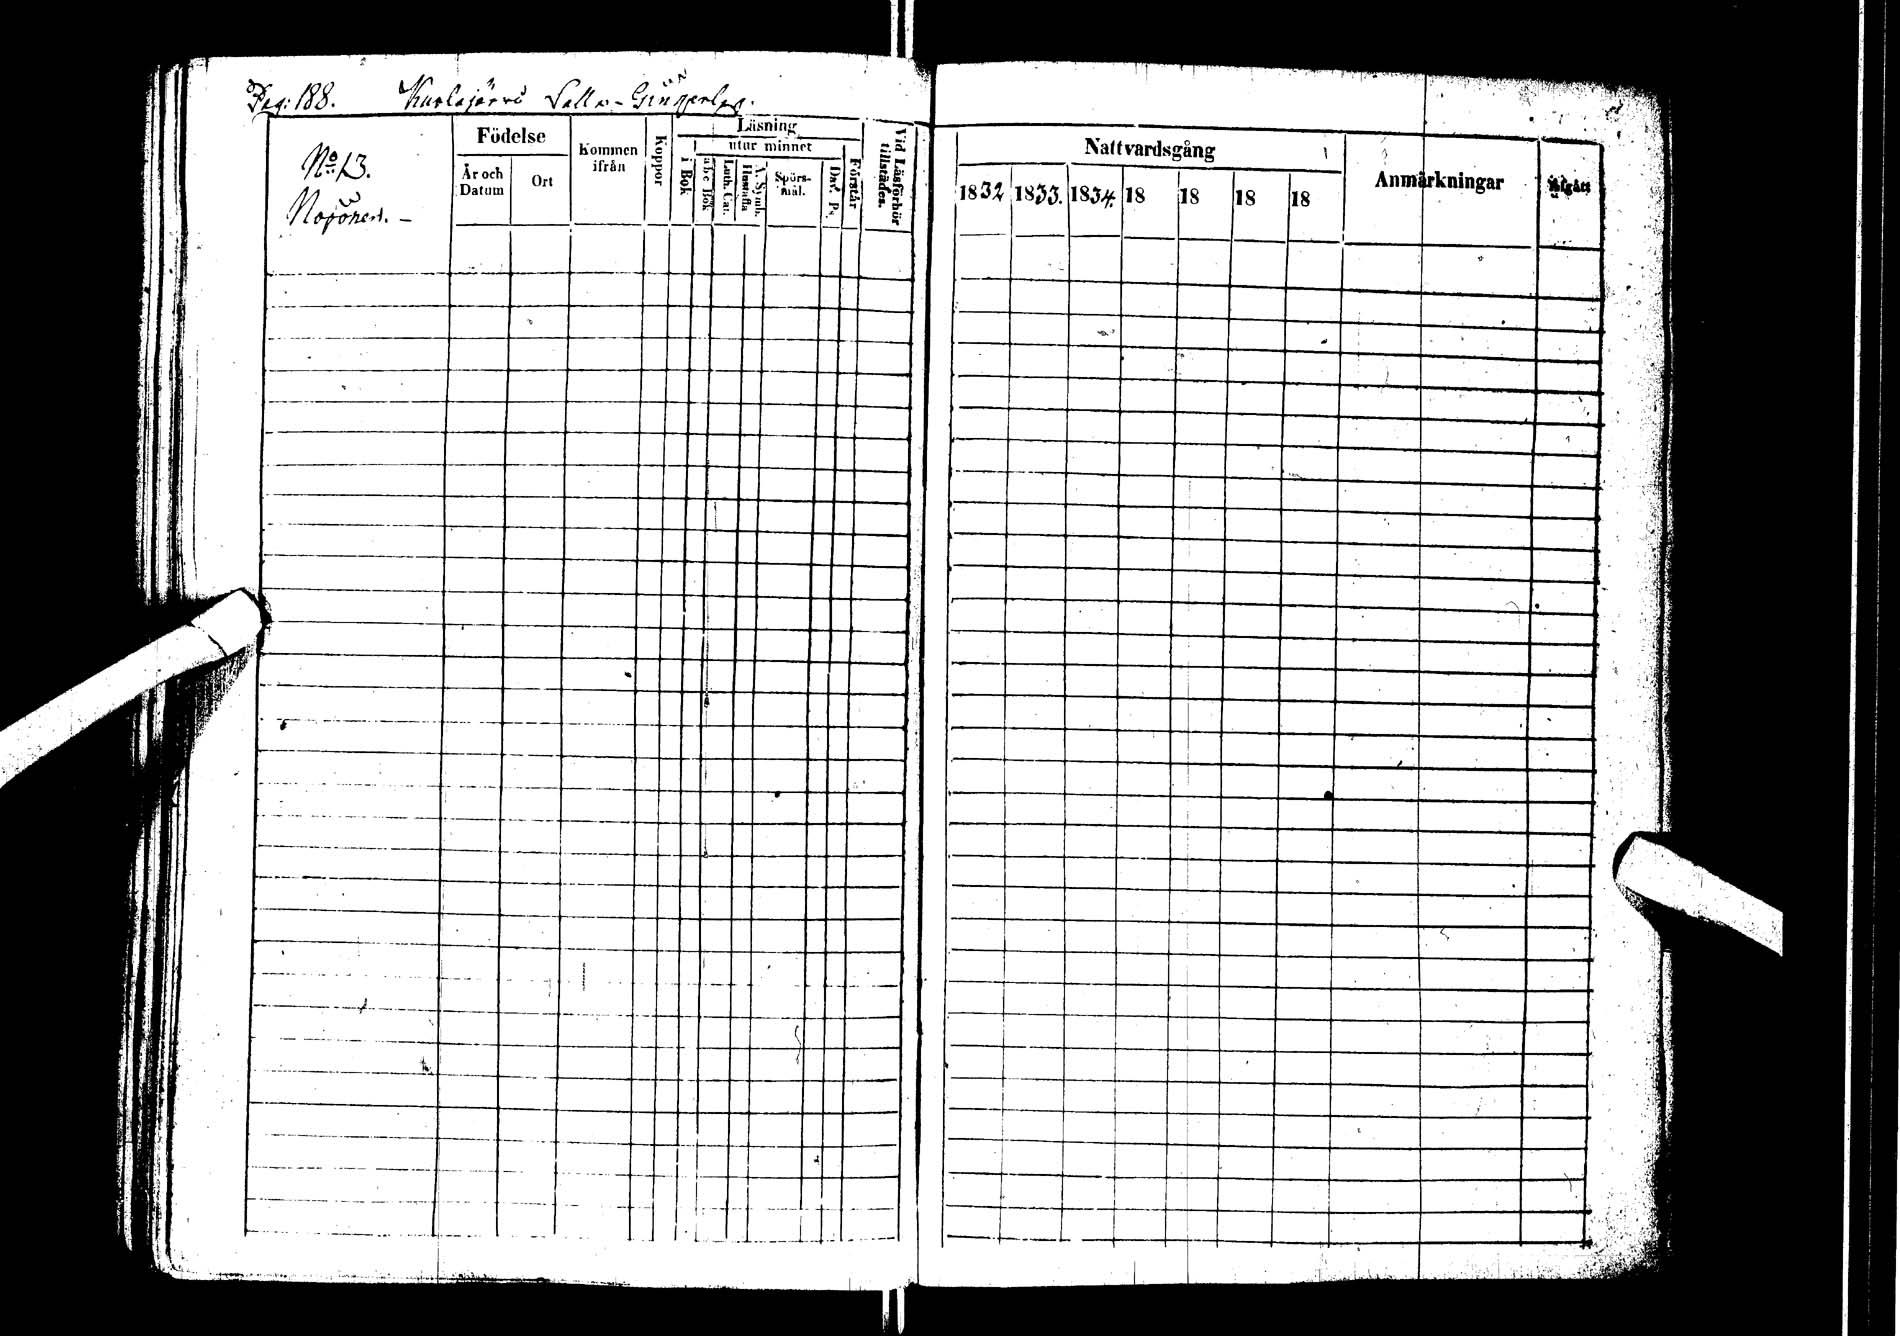 Pag: 188. Kuolajärvi Salla-
No 13.
Nojonen. -
Födelse
År och Datum
Ort
Kommen ifrån
Koppor
Läsning
utur minnet
i Bok
a b c Bok
Luth. Cat.
Hustafla
A. Symb.
Spörs-mål.
Dav. Ps.
Förstår
Vid Läsförhör tillstädes.
Nattvardsgång
1832 1833. 1834. 18 18 18 18
Anmärkningar
Afgått